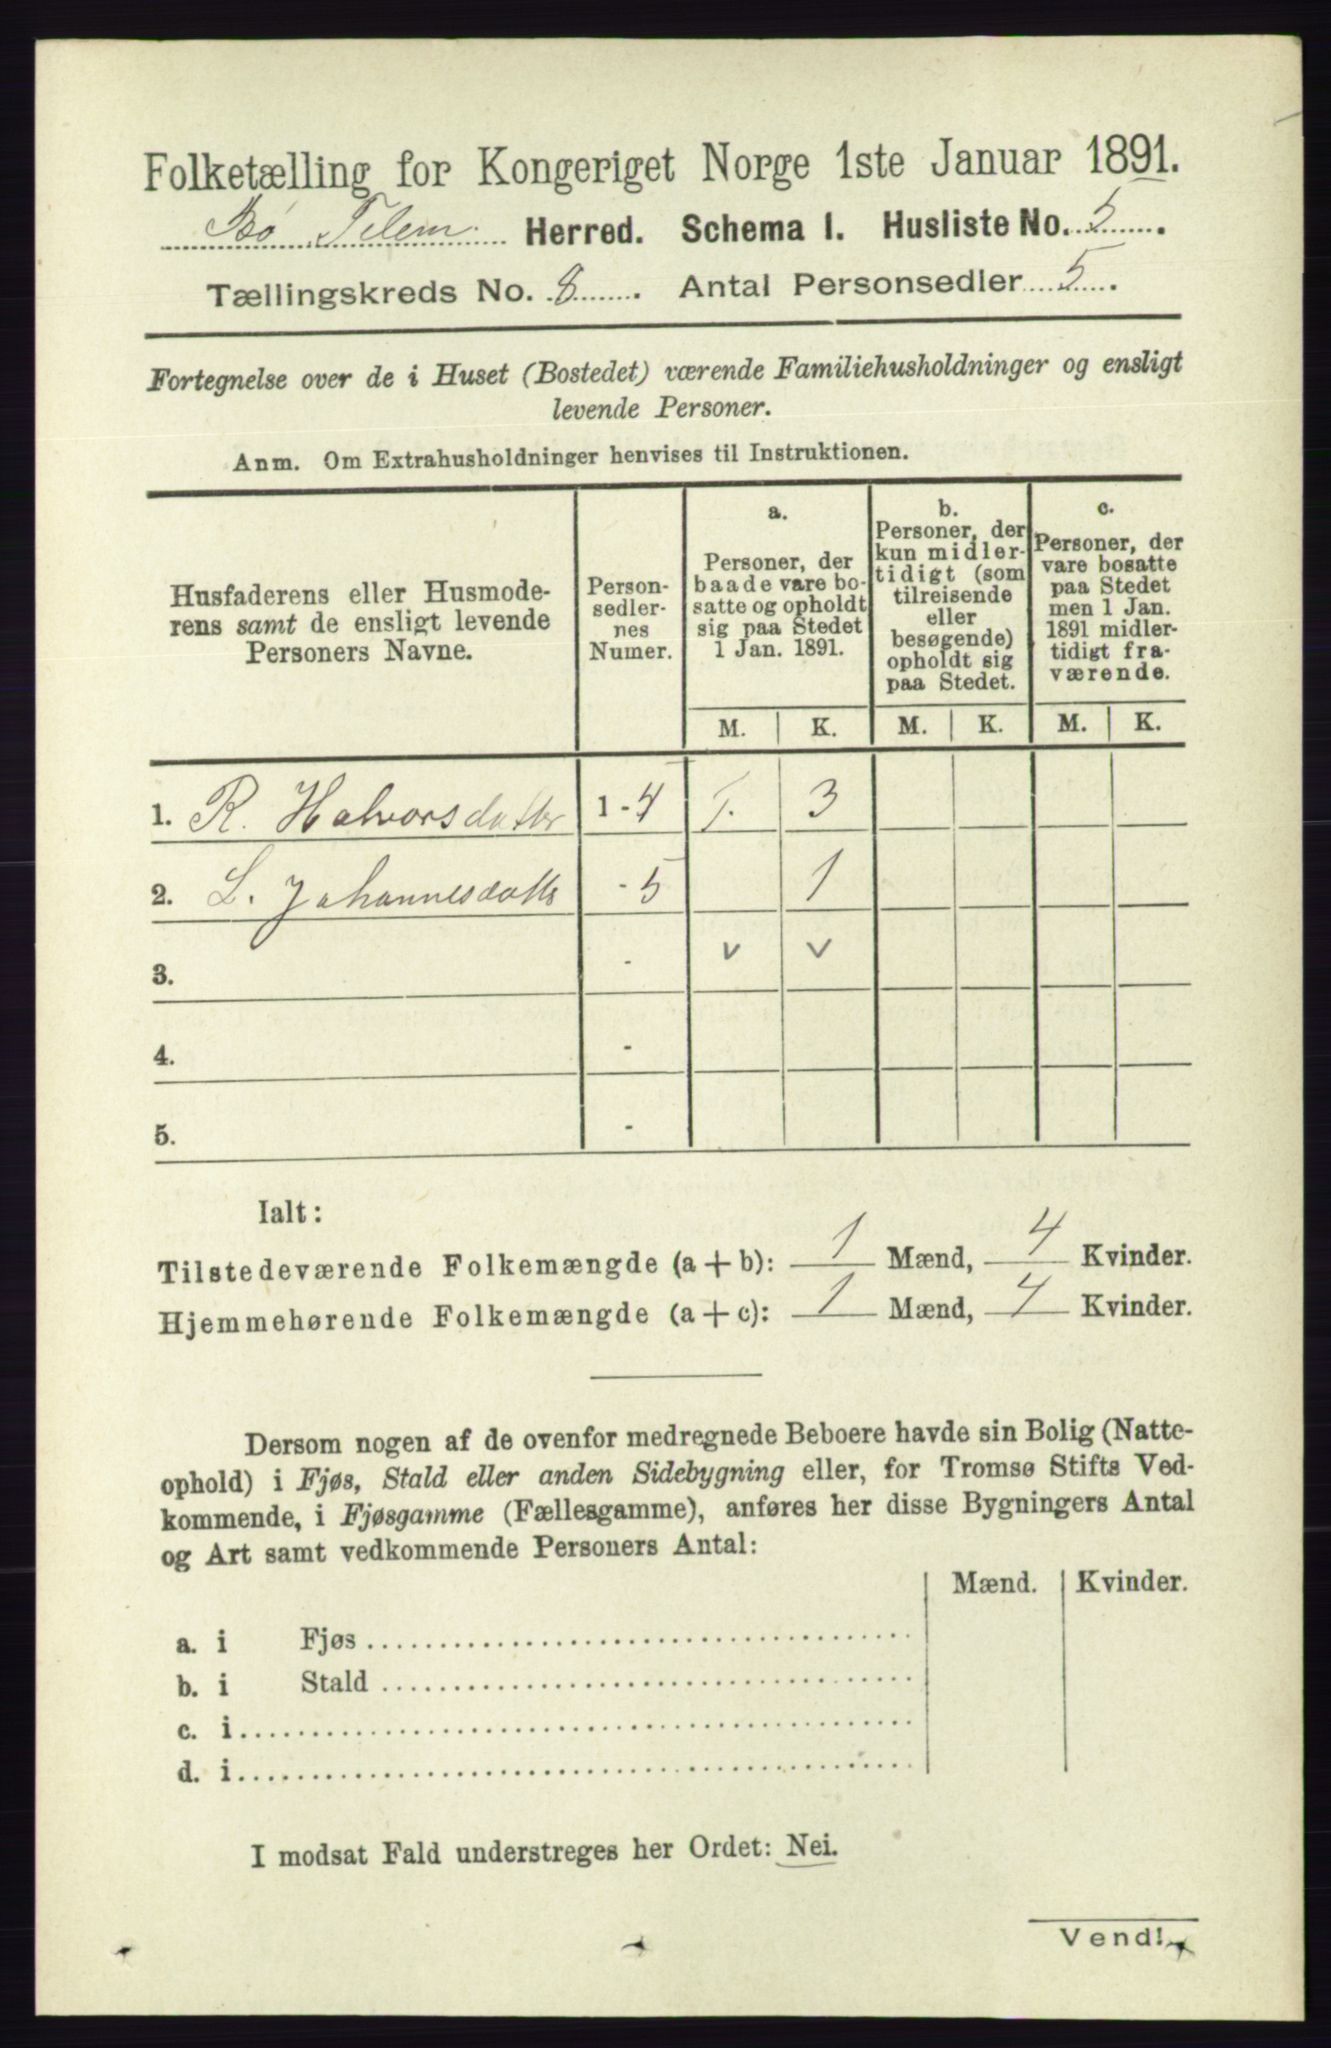 Folketælling for Kongeriget Norge 1ste Januar 1891.
Bø Telem. Herred. Schema I. Husliste No. 5.
Tællingskreds No. 8. Antal Personsedler 5.
Fortegnelse over de i Huset (Bostedet) værende Familiehusholdninger og ensligt
levende Personer.
Anm. Om Extrahusholdninger henvises til Instruktionen.
Husfaderens eller Husmode-
rens samt de ensligt levende
Personers Navne.
Person-
sedler-
nes
Numer.
a.
Personer, der
baade vare bo-
satte og opholdt
sig paa Stedet
1 Jan. 1891.
b.
Personer, der
kun midler-
tidigt (som
tilreisende
eller
besøgende)
opholdt sig
paa Stedet.
c.
Personer, der
vare bosatte
paa Stedet
men 1 Jan.
1891 midler-
tidigt fra-
værende.
M. K. M. K. M. K.
1. R. Halvorsdatter 1 - 4 1. 3
2. L. Johannesdatter - 5 1
3. - v v
4. -
5. -
Ialt:
Tilstedeværende Folkemængde (a + b): 1 Mænd, 4 Kvinder.
Hjemmehørende Folkemængde (a + c): 1 Mænd, 4 Kvinder.
Dersom nogen af de ovenfor medregnede Beboere havde sin Bolig (Natte-
ophold) i Fjøs, Stald eller anden Sidebygning eller, for Tromsø Stifts Ved-
kommende, i Fjøsgamme (Fællesgamme), anføres her disse Bygningers Antal
og Art samt vedkommende Personers Antal:
Mænd. Kvinder.
a. i Fjøs
b. i Stald
c. i
d. i
I modsat Fald understreges her Ordet: Nei.
Vend!